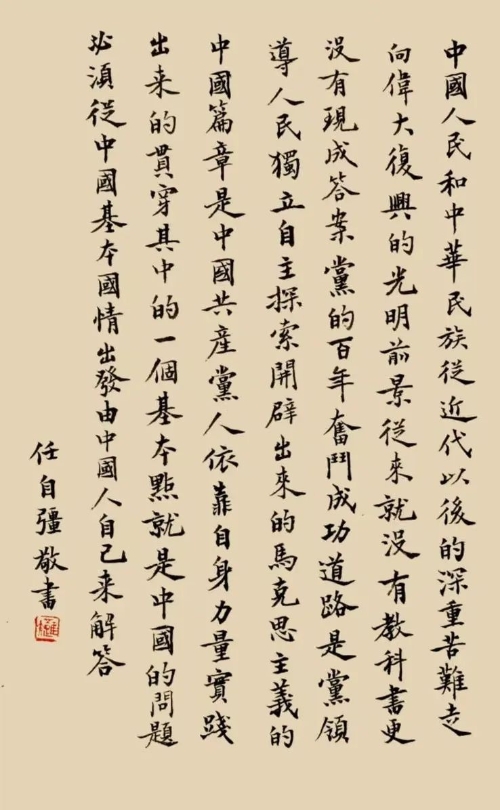 中國人民和中華民族從近代以後的深重苦難走
向偉大復興的光明前景從來就没有教科書更
没有現成答案黨的百年奮鬥成功道路是黨領
導人民獨立自主探索開辟出來的馬克思主義的
中國篇章是中國共產黨人依靠自身力量實踐
出来的貫穿其中的一個基本點就是中國的問題
必須從中國基本國情出發由中國人自己来解答
任自彊敬書